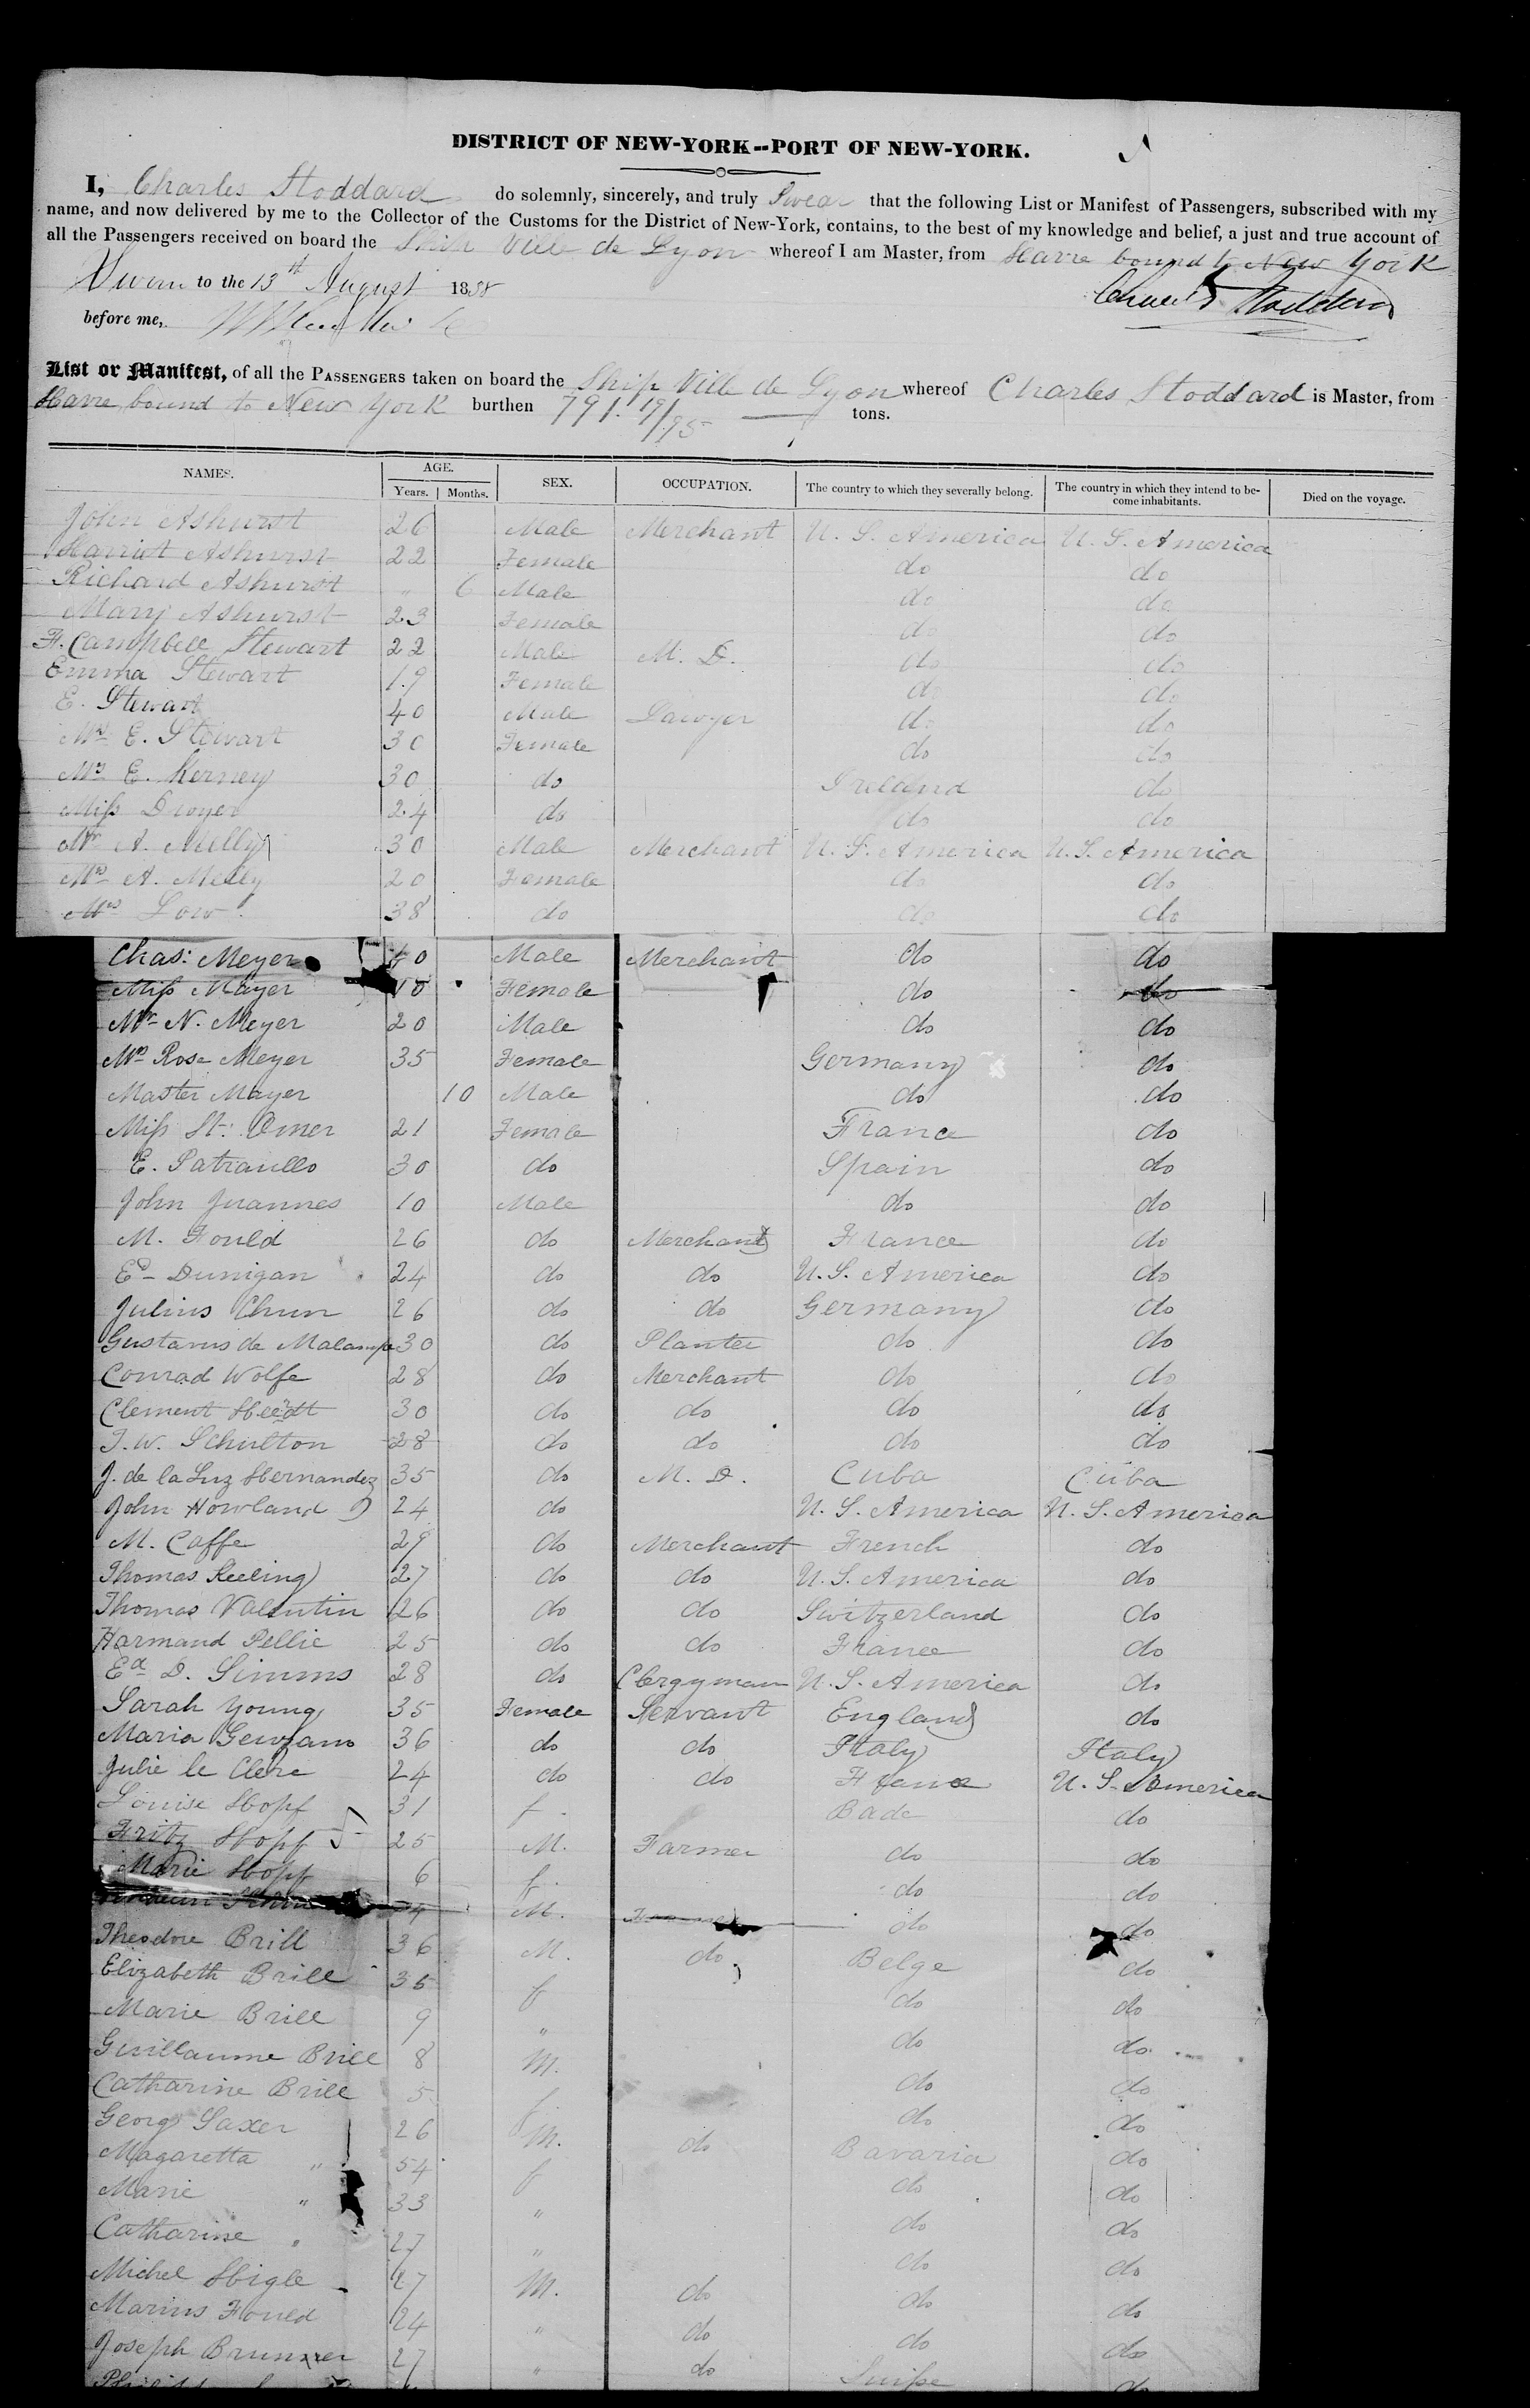 DISTRICT OF NEW-YORK--PORT OF NEW-YORK.
I, Charles Stoddard do solemnly, sincerely, and truly Swear that the following List or Manifest of Passengers, subscribed with my
name, and now delivered by me to the Collector of the Customs for the District of New-York, contains, to the best of my knowledge and belief, a just and true account of
all the Passengers received on board the Ship Ville de Lyon whereof I am Master, from Havre bound to New York
Sworn to the 13th August 1838 Charles Stoddard
before me,
List or Manifest, of all the PASSENGERS taken on board the Ship Ville de Lyon whereof Charles Stoddard is Master, from
Havre bound to New York burthen 791. 19/95 tons.
NAMES. AGE. SEX. OCCUPATION. The country to which they severally belong. The country in which they intend to be-come inhabitants. Died on the voyage.
Years. Months.
John Ashurst 26 Male Merchant U. S. America U. S. America
Harriet Ashurst 22 Female do do
Richard Ashurst " 6 Male do do
Mary Ashurst 23 Female do do
F. Campbell Stewart 22 Male M. D. do do
Emma Stewart 19 Female do do
E. Stewart 40 Male Lawyer do do
Mrs E. Stewart 30 Female do do
Mrs E. Kerney 30 do Ireland do
Miss Dwyer 24 do do do
Mr A. Melly 30 Male Merchant U. S. America U. S. America
Mrs A. Melly 20 Female do do
Mrs Low 38 do do do
Chas: Meyer 40 Male Merchant do do
Miss Mayer 18 Female do do
Mr N. Meyer 20 Male do do
Mrs Rose Meyer 35 Female Germany do
Master Mayer 10 Male do do
Miss St: Omer 21 Female France do
E. Patraullo 30 do Spain do
John Juannes 10 Male do do
M. Fould 26 do Merchant France do
Ed Dunigan 24 do do U. S. America do
Julius Chun 26 do do Germany do
Gustavus de 30 do Planter do do
Conrad Wolfe 28 do Merchant do do
Clement 30 do do do do
J. W. Schulton 28 do do do do
J. de la Luz Hernandez 35 do M. D. Cuba Cuba
John Howland 24 do U. S. America U. S. America
M. Caffe 29 do Merchant French do
Thomas Keeling 27 do do U. S. America do
Thomas Valentin 26 do do Switzerland do
Harmand Pellie 25 do do France do
Ed D. Simms 28 do Clergyman U. S. America do
Sarah Young 35 Female Servant England do
Maria 36 do do Italy Italy
Julie le Clere 24 do do France U. S. America
Louise Hopf 31 f. Bade do
Fritz Hopf 25 M. Farmer do do
Marie Hopf 6 f. do do
M. do do
Theodore Brill 36 M. do Belge do
Elizabeth Brill 35 f do do
Marie Brill 9 " do do
Guillaume Brill 8 M. do do
Catharine Brill 5 f do do
Georg Saxer 26 M. do Bavaria do
Magaretta " 54 f do do
Marie " 33 " do do
Catharine " 27 " do do
Michel Higle 27 M. do do do
Marius Fould 24 " do do do
Joseph Brunner 27 " do Suisse do